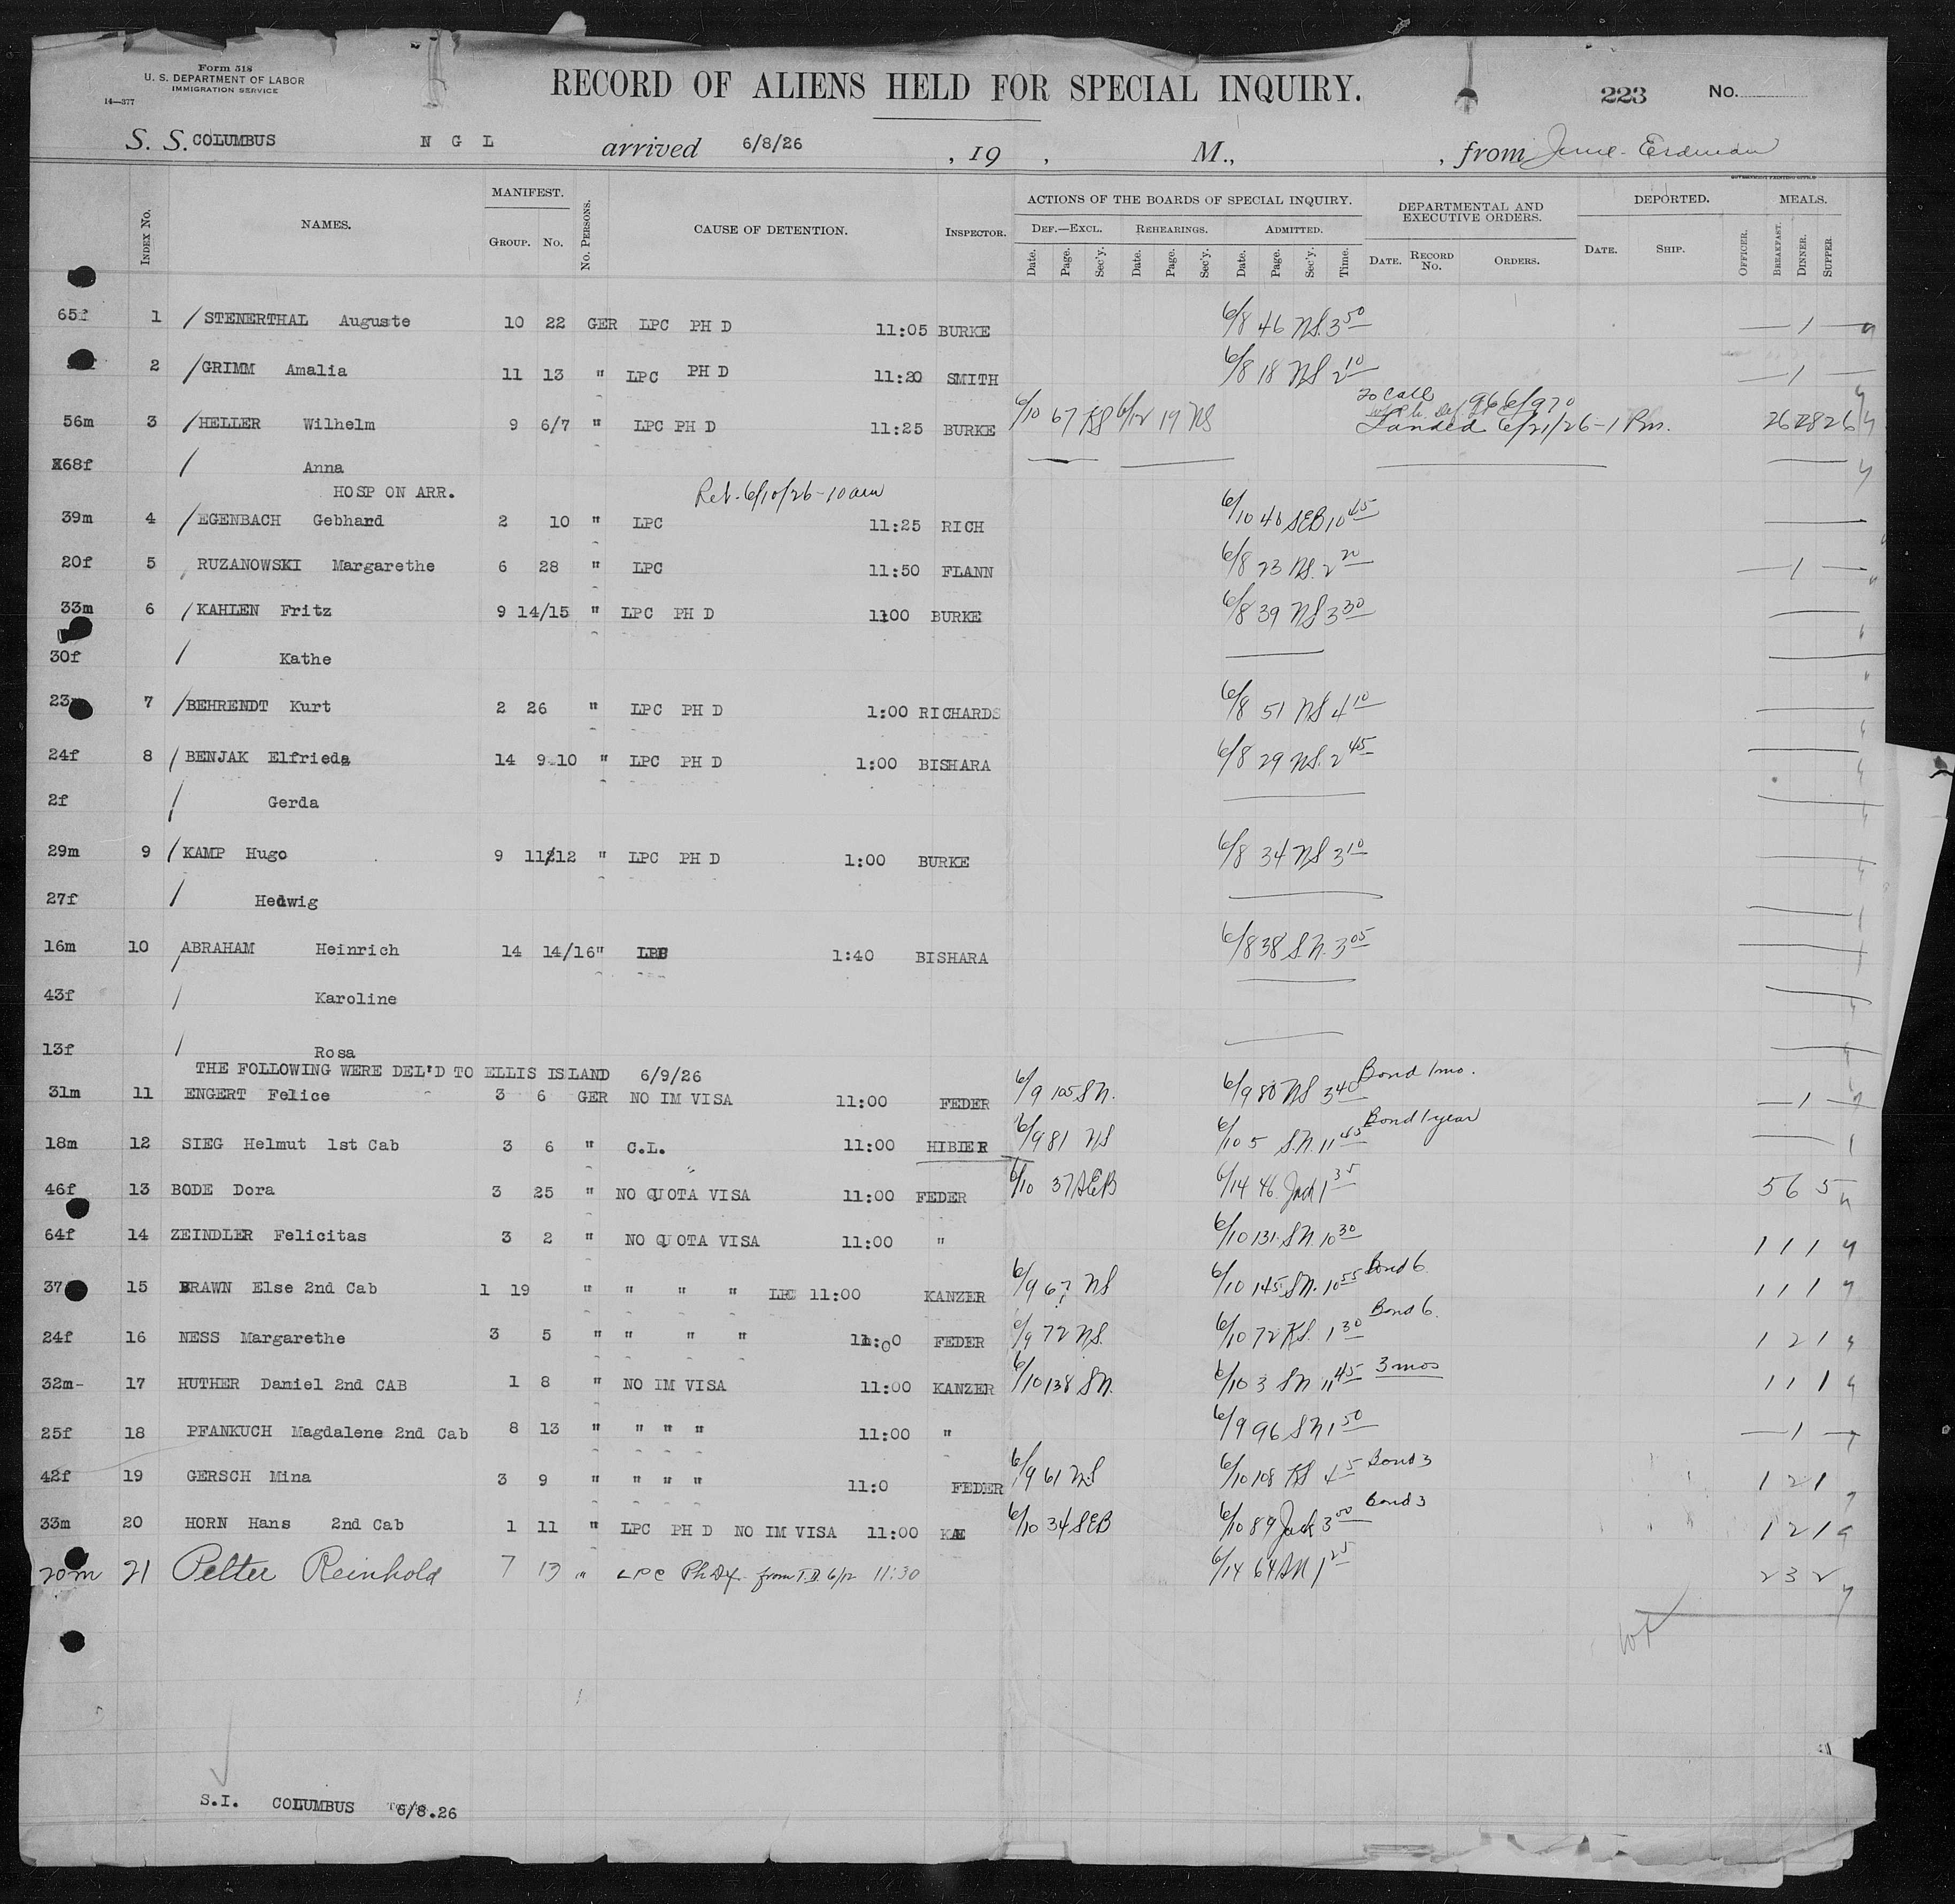 Form 518
U. S. DEPARTMENT OF LABOR
IMMIGRATION SERVICE
14—377
RECORD OF ALIENS HELD FOR SPECIAL INQUIRY.
223 No.
S. S. COLUMBUS N G L arrived 6/8/26 , 19 , M., , from Erdman
GOVERNMENT PRINTING OFFICE
INDEX NO. NAMES. MANIFEST. GROUP. NO. No. PERSONS. CAUSE OF DETENTION. INSPECTOR. ACTIONS OF THE BOARDS OF SPECIAL INQUIRY. DEF.—EXCL. REHEARINGS. ADMITTED. Date. Page. Sec'y. Date. Page. Sec'y. Date. Page. Sec'y. Time. DEPARTMENTAL AND EXECUTIVE ORDERS. DATE. RECORD NO. ORDERS. DEPORTED. DATE. SHIP. OFFICER. MEALS. BREAKFAST. DINNER. SUPPER.
65f 1 / STENERTHAL Auguste 10 22 GER LPC PH D 11:05 BURKE 6/8 46 NS 3 50 — 1 —
2 / GRIMM Amalia 11 13 " LPC PH D 11:20 SMITH 6/8 18 NS 2 10 — 1 —
56m 3 / HELLER Wilhelm 9 6/7 " LPC PH D 11:25 BURKE 6/10 67 KS 6/12 19 NS Landed 6/21/26 - 1 Pm. 26 28 26
68f / Anna
HOSP ON ARR. Rel. 6/10/26 - 10 am
39m 4 / EGENBACH Gebhard 2 10 " LPC 11:25 RICH 6/10 40 SEB 10 45
20f 5 RUZANOWSKI Margarethe 6 28 " LPC 11:50 FLANN 6/8 23 NS. 2 20 — 1 —
33m 6 / KAHLEN Fritz 9 14/15 " LPC PH D 1:00 BURKE 6/8 39 NS 3 30
30f / Kathe
23m 7 / BEHRENDT Kurt 2 26 " LPC PH D 1:00 RICHARDS 6/8 51 NS 4 10
24f 8 / BENJAK Elfrieda 14 9-10 " LPC PH D 1:00 BISHARA 6/8 29 NS. 2 45
2f / Gerda
29m 9 / KAMP Hugo 9 11/12 " LPC PH D 1:00 BURKE 6/8 34 NS 3 10
27f / Hedwig
16m 10 ABRAHAM Heinrich 14 14/16 " LPC 1:40 BISHARA 6/8 38 S.N. 3 05
43f / Karoline
13f / Rosa
THE FOLLOWING WERE DEL'D TO ELLIS ISLAND 6/9/26
31m 11 ENGERT Felice 3 6 GER NO IM VISA 11:00 FEDER 6/9 105 SN. 6/9 80 NS 3 40 Bond 1 mo. — 1 —
18m 12 SIEG Helmut 1st Cab 3 6 " C.L. 11:00 HIBIER 6/9 81 NS 6/10 5 S.N. 11 45 Bond 1 year — 1
46f 13 BODE Dora 3 25 " NO QUOTA VISA 11:00 FEDER 6/10 37 SEB 6/14 46 Jack 1 35 5 6 5
64f 14 ZEINDLER Felicitas 3 2 " NO QUOTA VISA 11:00 " 6/10 131 SN. 10 30 1 1 1
37 15 BRAWN Else 2nd Cab 1 19 " " " " LPC 11:00 KANZER 6/9 67 NS 6/10 145 SN. 10 55 Bond 6 1 1 1
24f 16 NESS Margarethe 3 5 " " " " 11:00 FEDER 6/9 72 NS. 6/10 72 KS. 1 30 Bond 6. 1 2 1
32m- 17 HUTHER Daniel 2nd CAB 1 8 " NO IM VISA 11:00 KANZER 6/10 138 SN. 6/10 3 SN 11 45 3 mos 1 1 1
25f 18 PFANKUCH Magdalene 2nd Cab 8 13 " " " " 11:00 " 6/9 96 SN 1 50 — 1 —
42f 19 GERSCH Mina 3 9 " " " " 11:0 FEDER 6/9 61 NS 6/10 108 KS 4 5 Bond 3 1 2 1
33m 20 HORN Hans 2nd Cab 1 11 " LPC PH D NO IM VISA 11:00 KAE 6/10 34 SEB 6/10 89 Jack 3 00 Bond 3 1 2 1
20m 21 Pelter Reinhold 7 13 " LPC Ph Df. from T.D. 6/12 11:30 6/14 64 SN 1 25 2 3 2
S.I. COLUMBUS 6/8.26